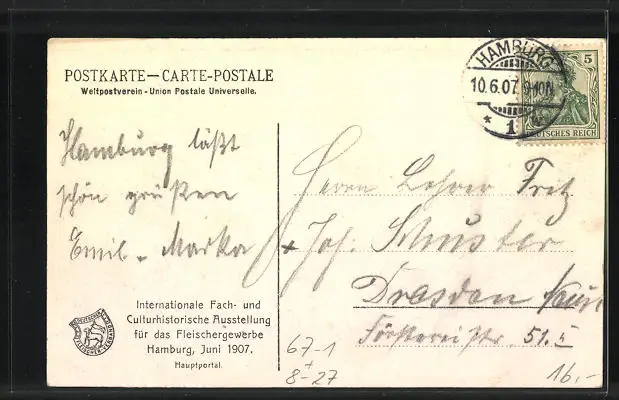 POSTKARTE—CARTE-POSTALE
Weltpostverein - Union Postale Universelle.
HAMBURG
10.6.07. 9-10N
* 1
5
DEUTSCHES REICH
Hamburg läßt
schön grüßen
Emil. Marka
Herrn Lehrer Fritz
Joh. Schuster
Dresden
Försterei str. 51. I
Internationale Fach- und
Culturhistorische Ausstellung
für das Fleischergewerbe
Hamburg, Juni 1907.
Hauptportal.
67-1
+
8-27
16.-